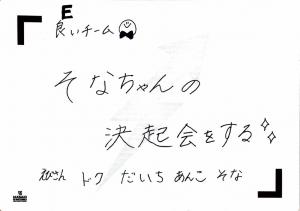 E
良いチーム
そなちゃんの
決起会をする
えびさん トク だいち あんこ そな